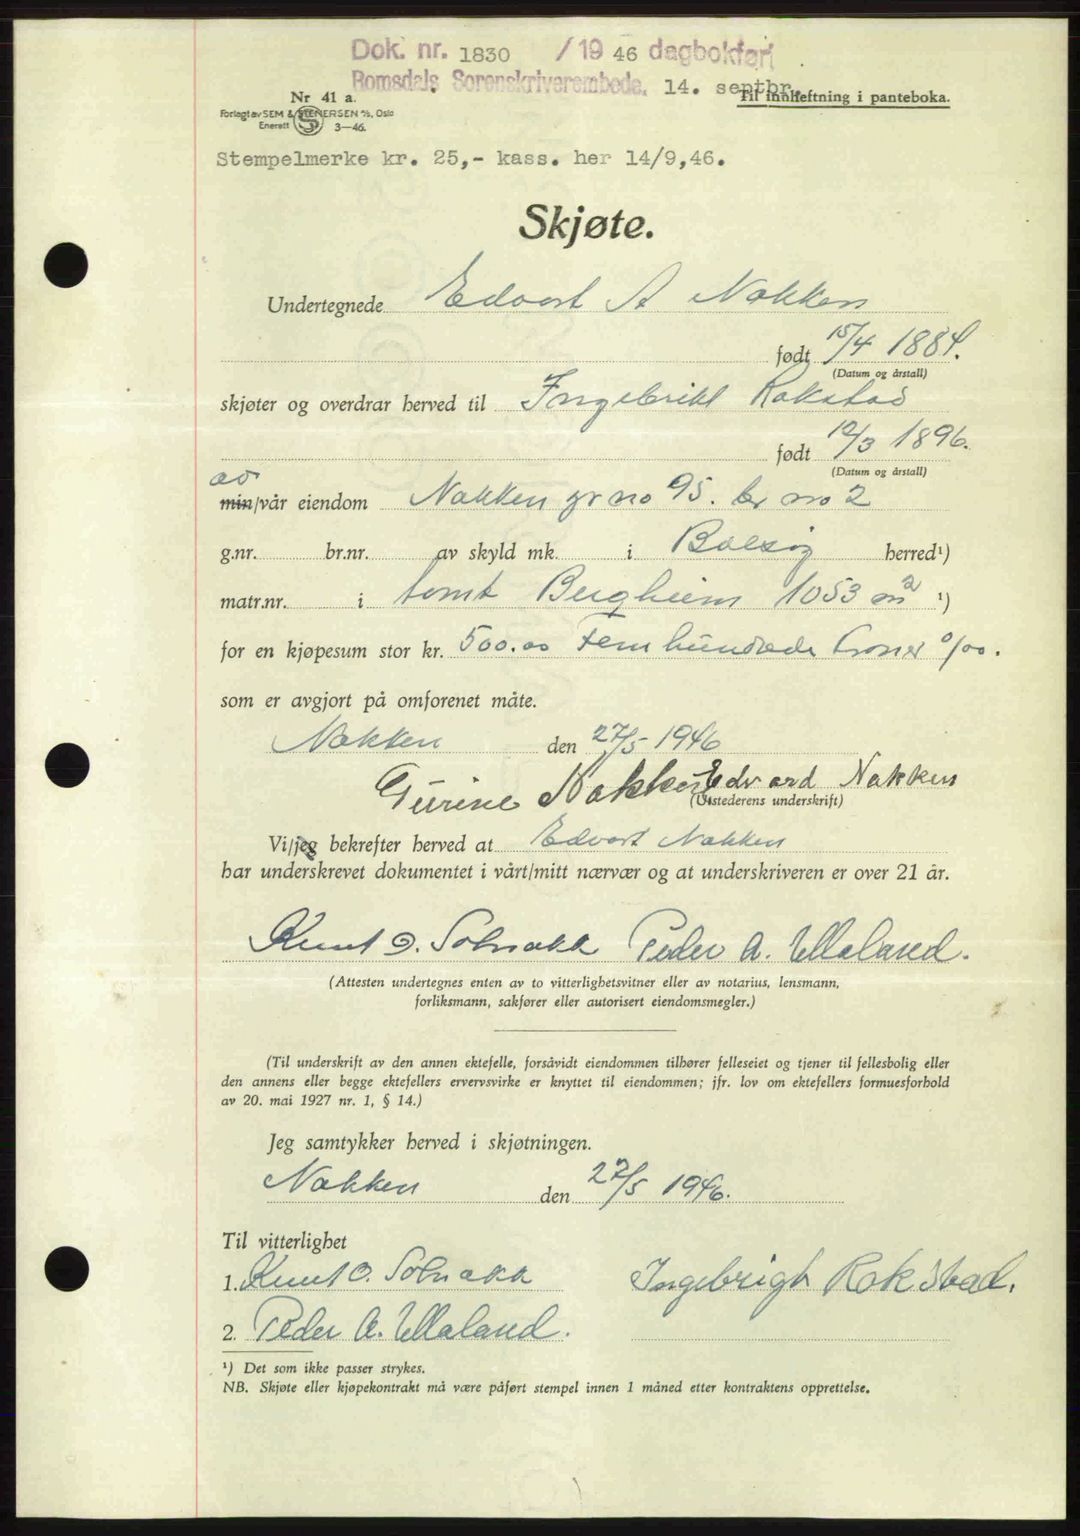 Dok. nr. 1830 /1946 dagbokført
Romsdals Sorenskriverembede, 14. septbr.
Nr 41 a.
Til innheftning i panteboka.
Forlagt av SEM & STENERSEN A/S, Oslo
Enerett 3—46.
Stempelmerke kr. 25,- kass. her 14/9,46.
Skjøte.
Undertegnede Edvart A Nakken
født 15/4 1884.
(Datum og årstall)
skjøter og overdrar herved til Ingebrikt Rakstad
født 12/3 1896.
(Datum og årstall)
av
min/vår eiendom Nakken gr no 95. br no 2
g.nr. br.nr. av skyld mk. i Bolsøy herred¹)
matr.nr. i tomt Bergheim 1053 m² ¹)
for en kjøpesum stor kr. 500.00 Femhundrede kroner 0/00.
som er avgjort på omforenet måte.
Nakken den 27/5 1946
Gurine Nakken Edvard Nakken
(Utstederens underskrift)
Vi/jeg bekrefter herved at Edvart Nakken
har underskrevet dokumentet i vårt/mitt nærvær og at underskriveren er over 21 år.
Knut O. Solnakk Peder A. Ullaland.
(Attesten undertegnes enten av to vitterlighetsvitner eller av notarius, lensmann,
forliksmann, sakfører eller autorisert eiendomsmegler.)
(Til underskrift av den annen ektefelle, forsåvidt eiendommen tilhører felleseiet og tjener til fellesbolig eller
den annens eller begge ektefellers ervervsvirke er knyttet til eiendommen; jfr. lov om ektefellers formuesforhold
av 20. mai 1927 nr. 1, § 14.)
Jeg samtykker herved i skjøtningen.
Nakken den 27/5 1946.
Til vitterlighet
1. Knut O. Solnakk Ingebrigt Rakstad.
2. Peder A. Ullaland.
¹) Det som ikke passer strykes.
NB. Skjøte eller kjøpekontrakt må være påført stempel innen 1 måned etter kontraktens opprettelse.